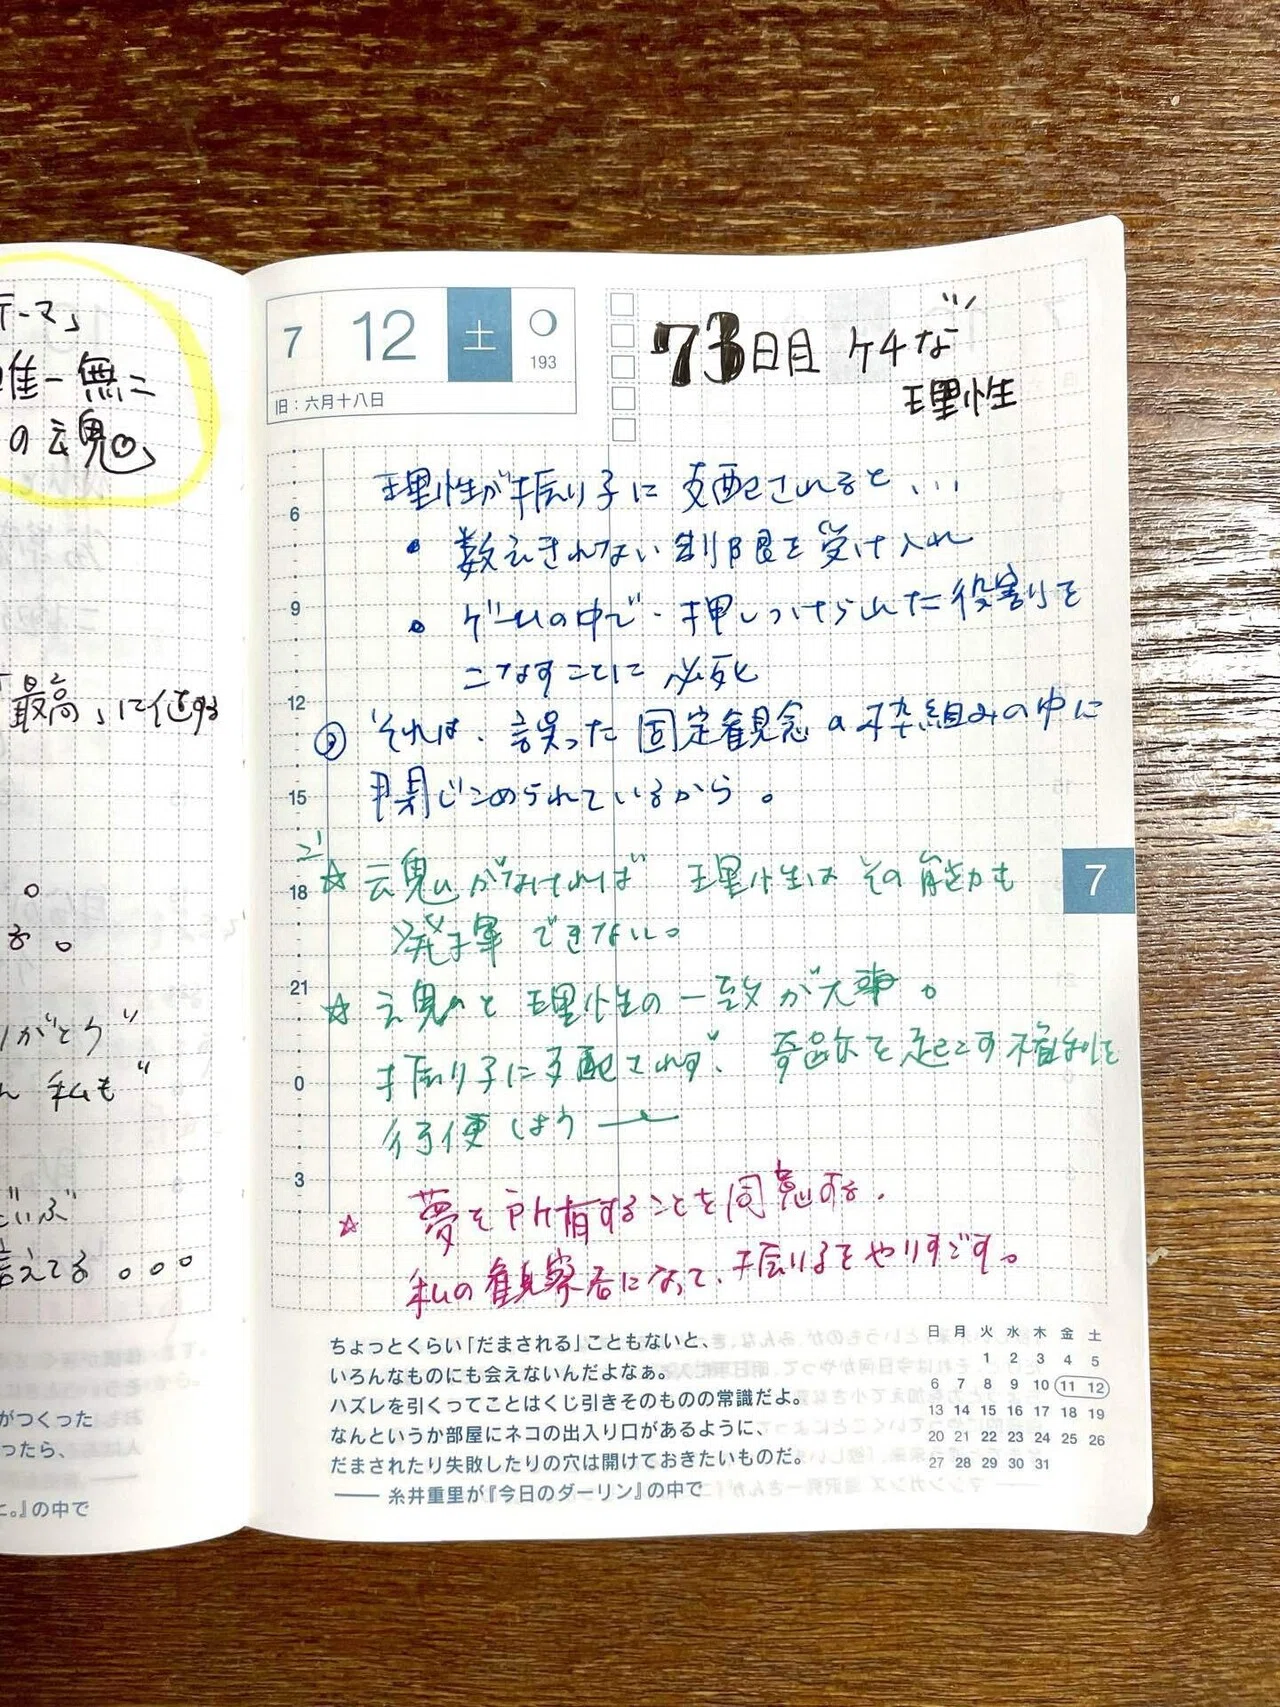 テーマ」
唯一無二
の魂
「最高」に値する
る。
りがとう"
ん 私も"
だいぶ
言えてる。。。
がつくった
ったら、
と。』の中で
7 12 土
193
旧:六月十八日
73日目 ケチな
理性
理性が振り子に支配されると...
・数えきれない制限を受け入れ
・ゲームの中で・押しつけられた役割りを
こなすことに必死
それは、誤った固定観念の枠組みの中に
閉じこめられているから。
☆魂がなければ 理性はその能力も
発揮できない。
☆魂と理性の一致が大事。
振り子に支配されず、奇跡を起こす権利を
行使しよう
☆ 夢を所有することを同意する。
私の観察者になって、振り子をやりすごす。
6
9
12
15
18
21
0
3
7
ちょっとくらい「だまされる」こともないと、
いろんなものにも会えないんだよなぁ。
ハズレを引くってことはくじ引きそのものの常識だよ。
なんというか部屋にネコの出入り口があるように、
だまされたり失敗したりの穴は開けておきたいものだ。
── 糸井重里が『今日のダーリン』の中で
日 月 火 水 木 金 土
1 2 3 4 5
6 7 8 9 10 11 12
13 14 15 16 17 18 19
20 21 22 23 24 25 26
27 28 29 30 31